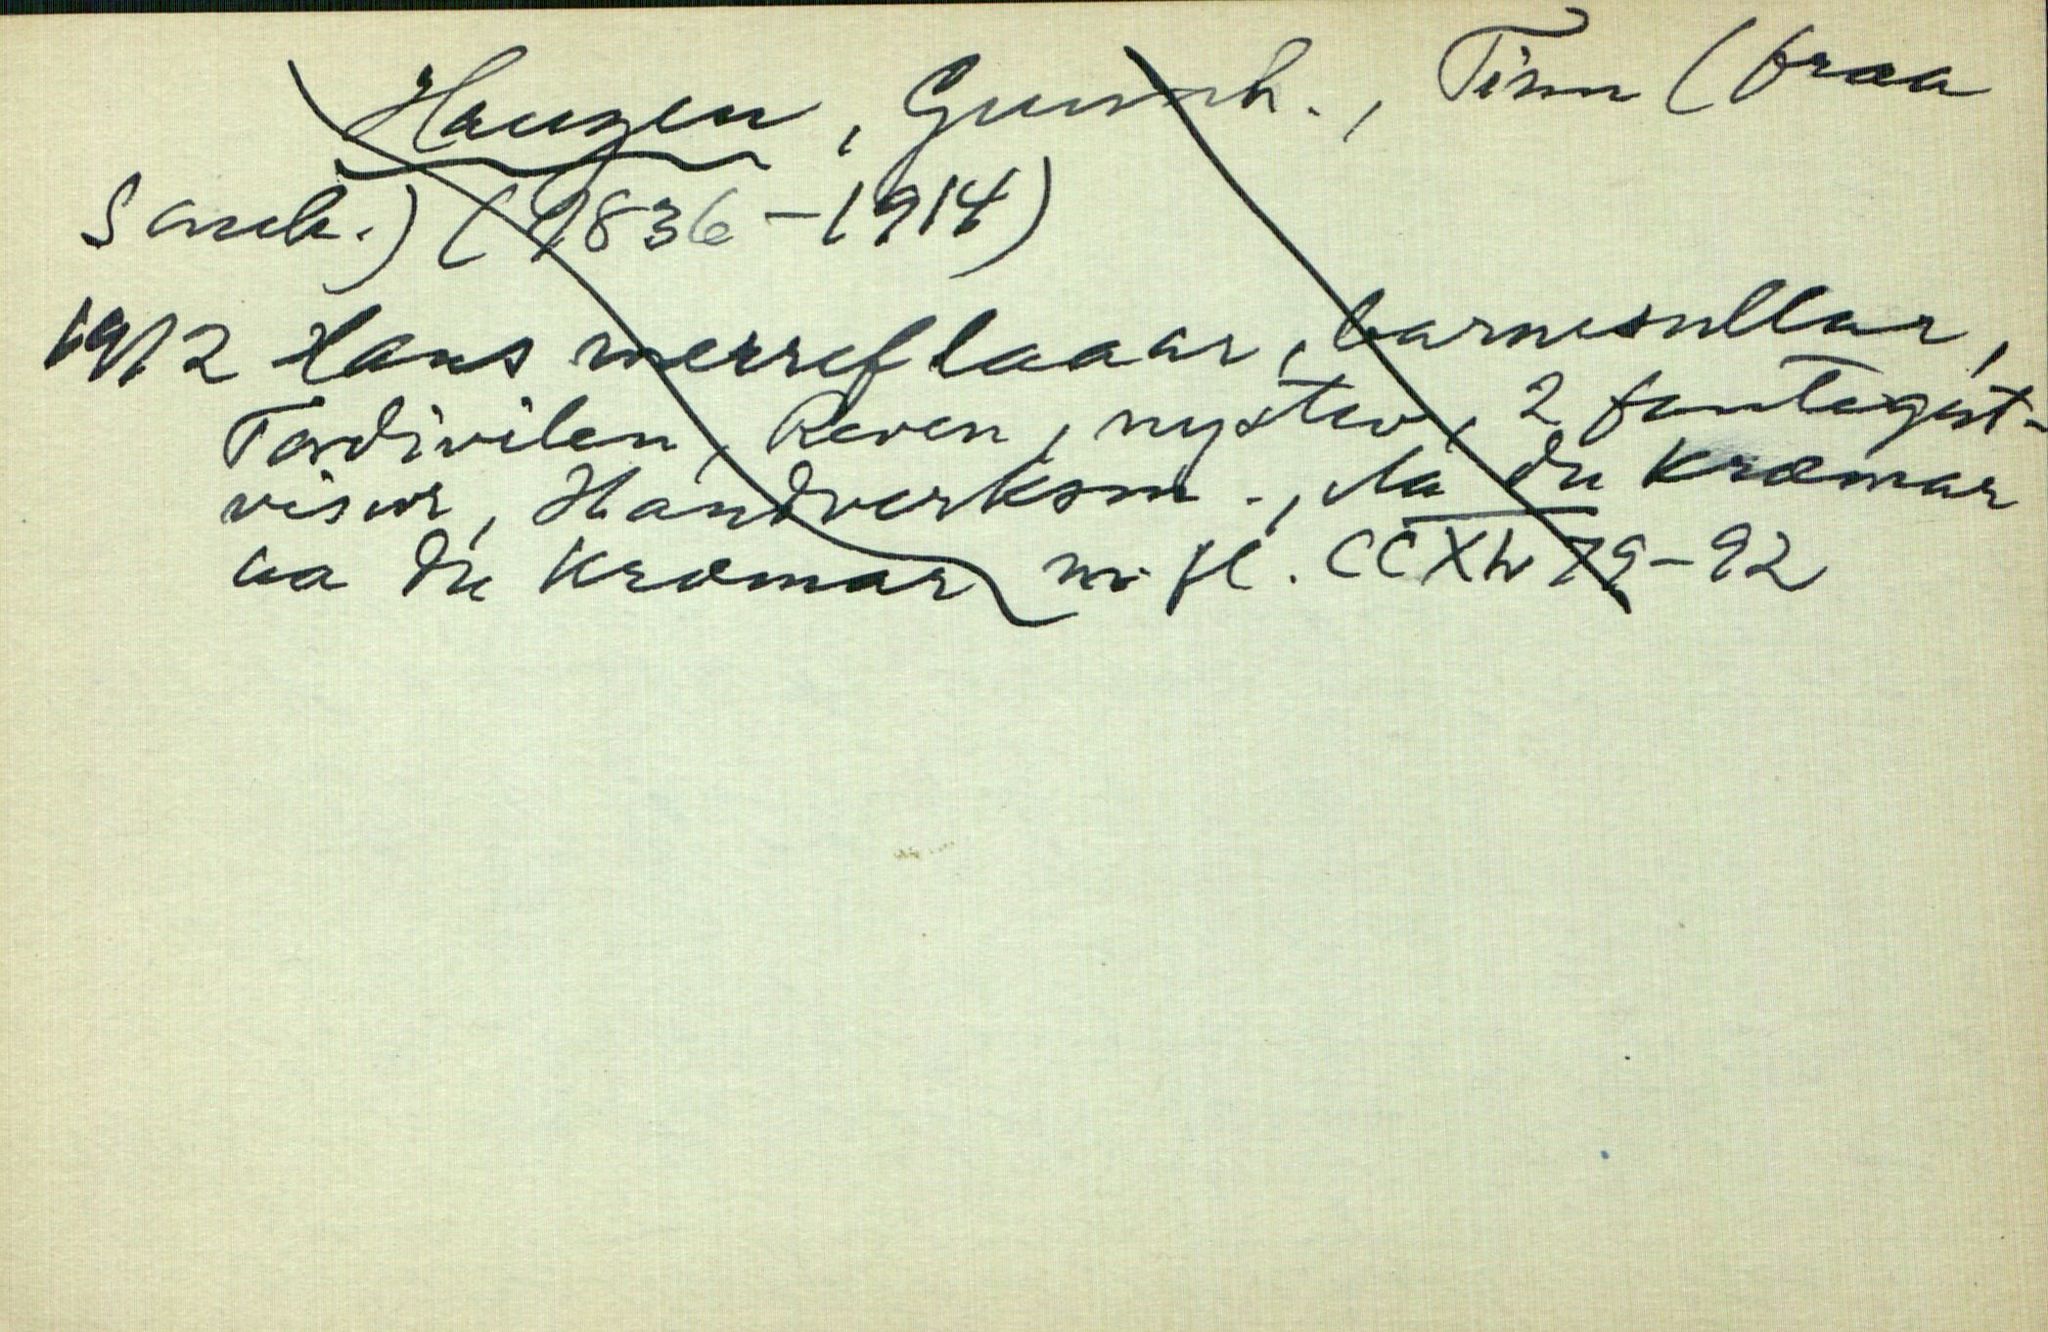 Haugen, Gunnh., Tinn (fraa
Sauh.) (1836-1914)
1912 Hans merreflaaar, barnesullar,
Tordivilen, Reven, nystev, 2 fantegut-
visur, Handverksm., Aa du Kræmar
aa du Kræmar m. fl. 79-92